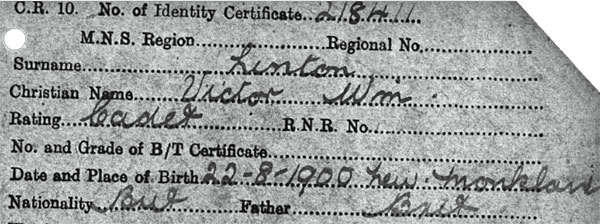 C.R. 10. No. of Identity Certificate..21841
M.N.S. Region.................Regional No.............
Surname............Linton............
Christian Name....Victor Wm.
Rating....Cadet............R.N.R. No.............
No. and Grade of B/T Certificate.............
Date and Place of Birth 22-8-1900 New Monkland
Nationality....Brit........Father........Brit